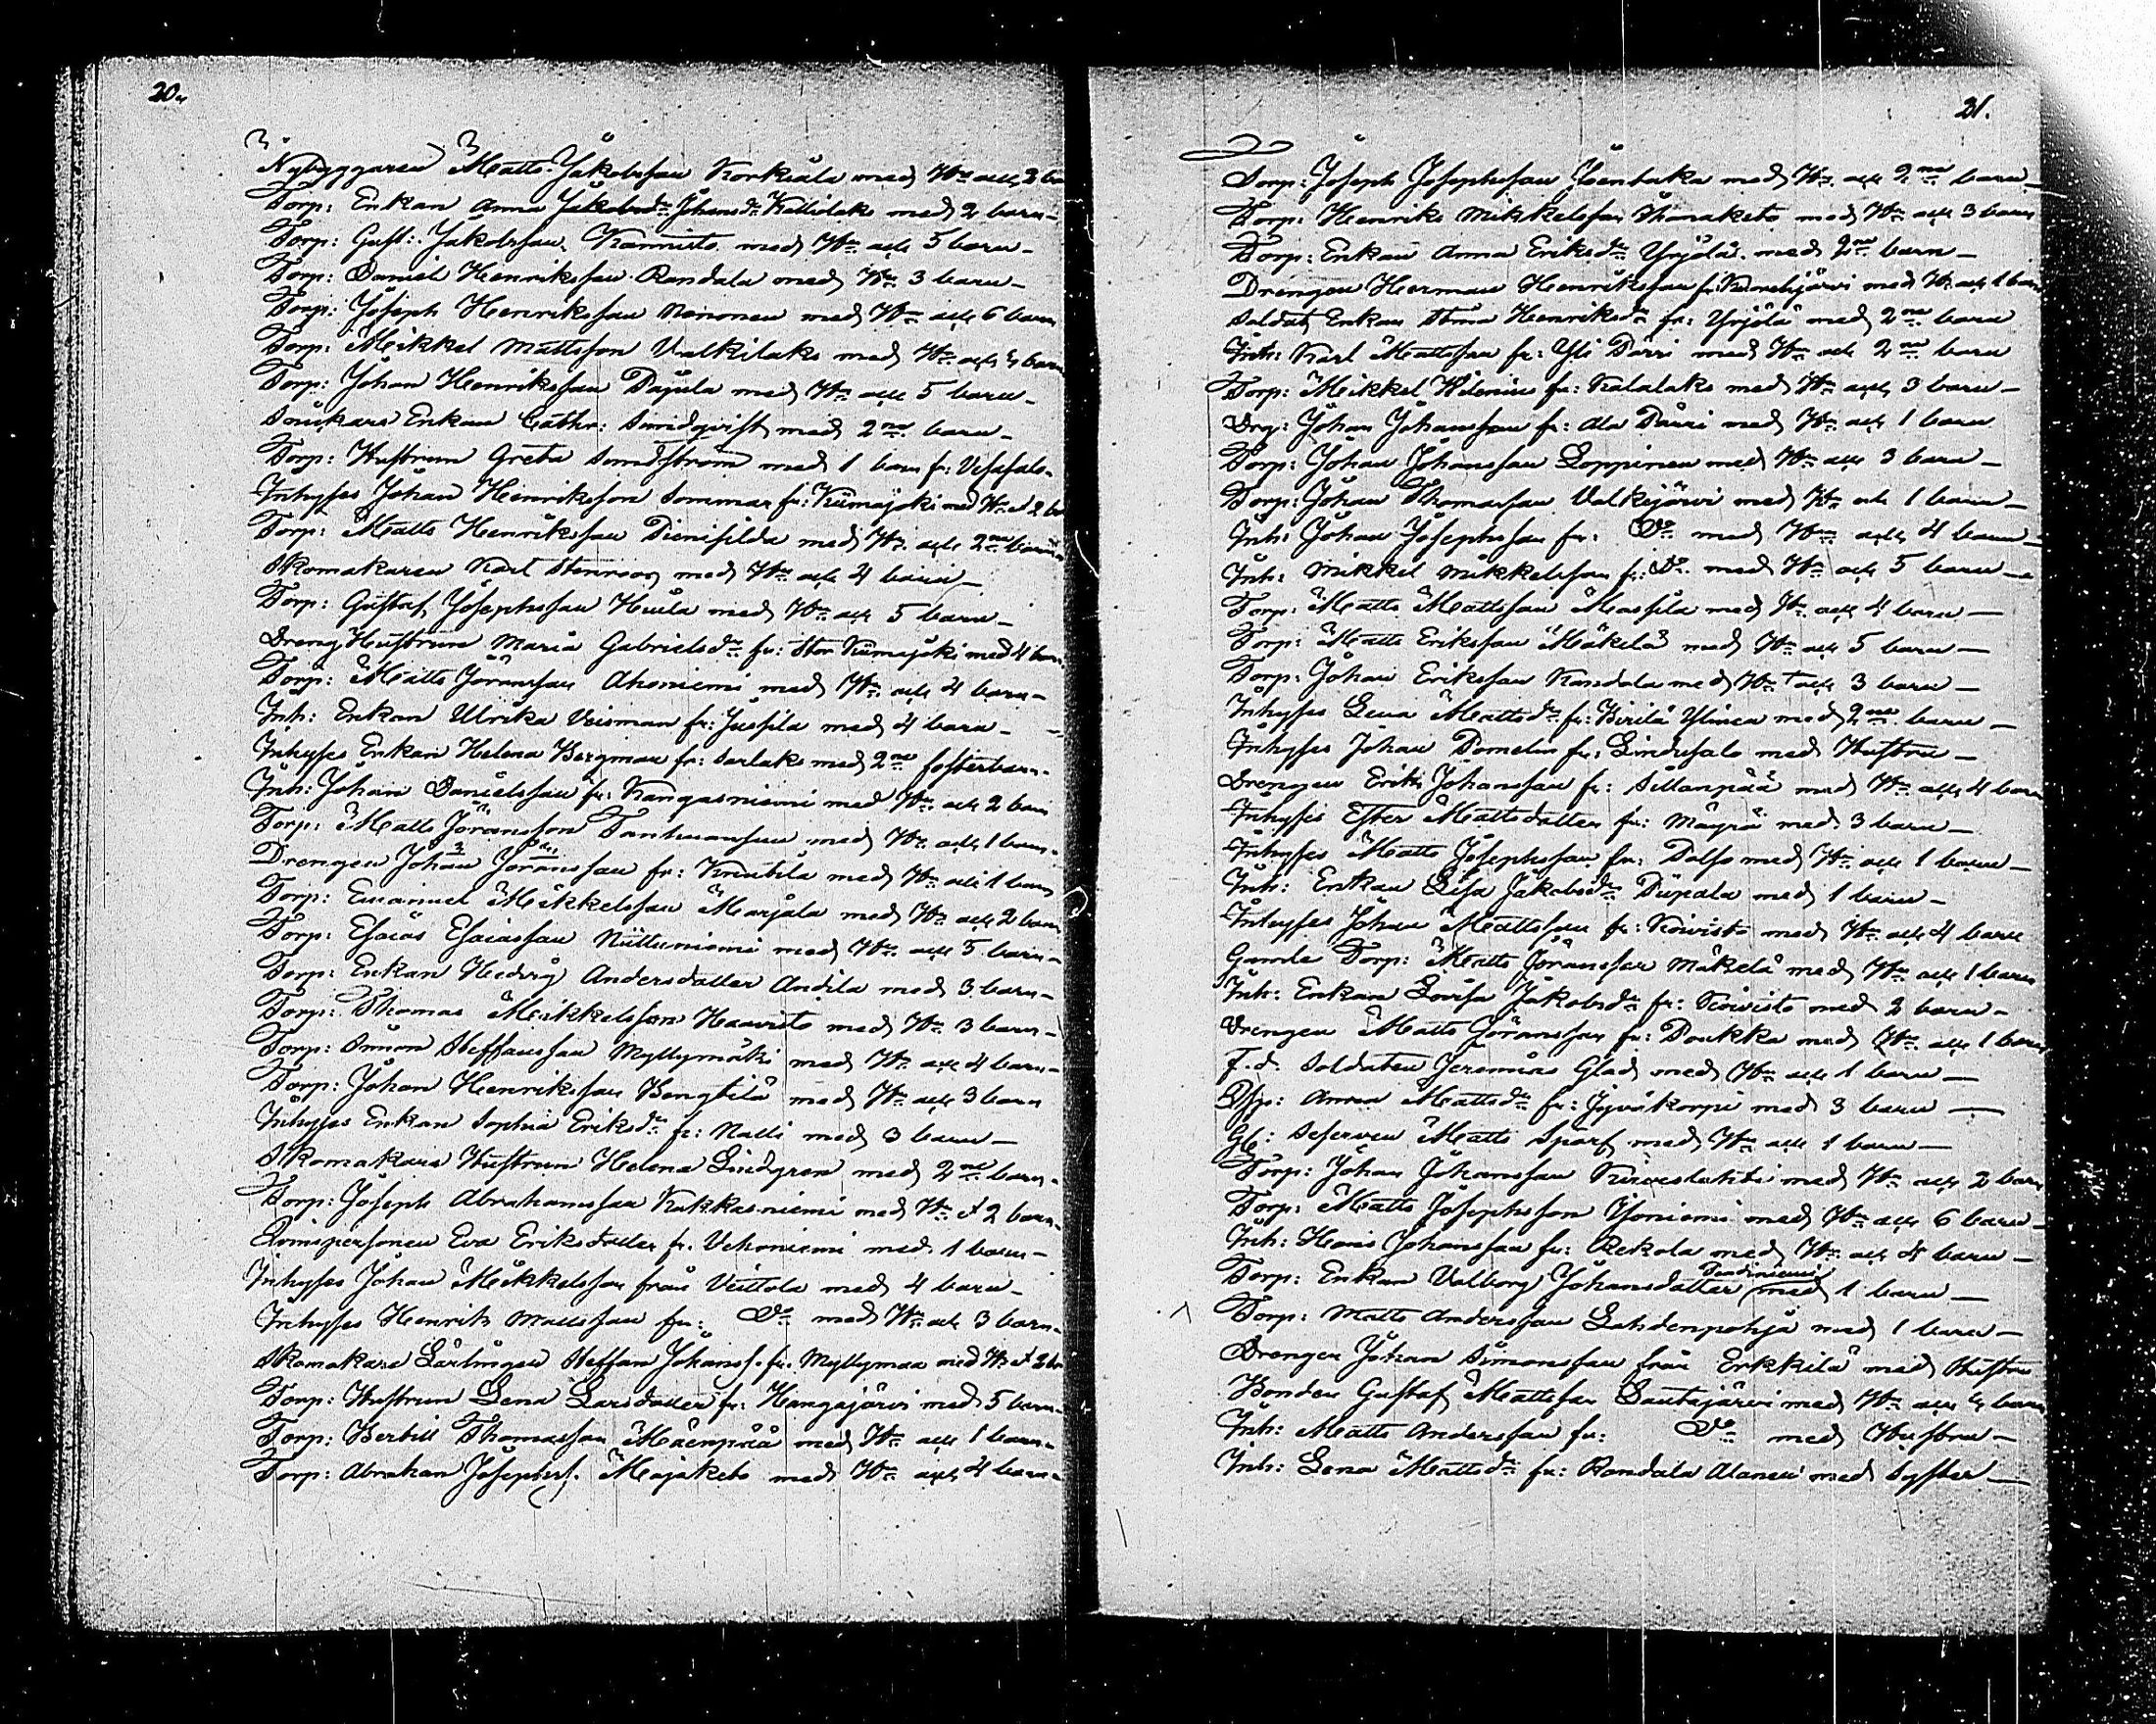 20.
Nybyggaren Matts Jakobsson Korkiala med H:u och 3 ba
Torp: Enkan Anna Jakobsd:r Johansd:r Kallilaks med 2 barn
Torp: Gust: Jakobsson Kannisto med H:u och 5 barn
Torp: Daniel Henriksson Randala med H:u 3 barn
Torp: Joseph Henriksson Nenonen med H:u och 6 barn
Torp: Mikkel Mattsson Valkilaks med H:u och barn
Torp: Johan Henriksson Pajula med H:u och 5 barn
Enkan Cathr: med 2:ne barn
Torp: Hustrun Greta Sundström med 1 barn fr: Vesasalo
Inhyses Johan Henriksson Sommar fr: Kiimajoki med H:u & 2 ba
Torp: Matts Henriksson Pienisilda med H:u och 2:ne barn
Skomakaren Karl Stenroos med H:u och 4 barn
Torp: Gustaf Josephsson Heula med H:u och 5 barn
Dreng Hustrun Maria Gabrielsd:r fr: Stor Kiimajoki med 4 barn
Torp: Matts Göransson Ahoniemi med H:u och 4 barn
Inh: Enkan Ulrika Veisman fr: Jussila med 4 barn
Inhyses Enkan Helena Bergman fr: Sarlaks med 2:ne fosterbarn
Inh: Johan Danielsson fr: Kangasniemi med H:u och 2 barn
Torp: Matts Göransson Tanhuanpuu med H:u och 1 barn
Drengen Johan Göransson fr: Knuutila med H:u och 1 barn
Torp: Emanuel Mikkelsson Marjala med H:u och 2 barn
Torp: Esaias Esaiasson Niittuniemi med H:u och 5 barn
Torp: Enkan Hedvig Andersdatter Andila med 3 barn
Torp: Thomas Mikkelsson Haavisto med H:u 3 barn
Torp: Simon Steffansson Myllymäki med H:u och 4 barn
Torp: Johan Henriksson Bengtilä med H:u och 3 barn
Inhyses Enkan Sophia Eriksd:r fr: Nalli med 3 barn
Skomakare Hustrun Helena Lindgren med 2:ne barn
Torp: Joseph Abrahamsson Kukkasniemi med H:u & 2 barn
Qvinspersonen Eva Eriksdatter fr. Vehoniemi med 1 barn
Inhyses Johan Mikkelsson från Veittola med 4 barn
Inhyses Henrik Mattsson fr: D:o med H:u och 3 barn
Skomakare Lärlingen Steffan Johanss. fr: Myllymaa med H:u & 2 ba
Torp: Hustrun Lena Larsdatter fr: Hangajärvi med 5 barn
Torp: Bertill Thomasson Mäenpää med H:u och 1 barn
Torp: Abraham Josephss. Majakets med H:u och 4 barn
21.
Torp: Joseph Josephsson med H:u och 2:ne barn
Torp: Henrik Mikkelsson med H:u och 3 barn
Torp: Enkan Anna Eriksd:r Yrjölä med 2:ne barn
Drengen Herman Henriksson fr: med H:u och 1 barn
Soldat Enkan Henriksd:r fr: Yrjölä med 2:ne barn
Inh: Karl Mattsson fr: Yli Pärri med H:u och 2:ne barn
Torp: Mikkel Hilenius fr: Kalalaks med H:u och 3 barn
Drg: Johan Johansson fr: Ala Pärri med H:u och 1 barn
Torp: Johan Johansson Loppinen med H:u och 3 barn
Torp: Johan Thomasson Valkijärvi med H:u och 1 barn
Inh: Johan Josephsson fr: D:o med H:u och 4 barn
Inh: Mikkel Mikkelsson fr: D:o med H:u och 5 barn
Torp: Matts Mattsson Massila med H:u och 4 barn
Torp: Matts Eriksson Mäkelä med H:u och 5 barn
Torp: Johan Eriksson Kandala med H:u och 3 barn
Inhyses Lena Mattsd:r fr: Pirilä Ylinen med 2:ne barn
Inhyses Johan Domelin fr: Lindusalo med Hustru
Drengen Erik Johansson fr: Sillanpää med H:u och 4 barn
Inhyses Ester Mattsdatter fr: Mäyrä med 3 barn
Inhyses Matts Josephsson fr: Palso med H:u och 1 barn
Inh: Enkan Lisa Jakobsd:r Piipala med 1 barn
Inhyses Johan Mattsson fr: Koivisto med H:u och 4 barn
Gamle Torp: Matts Göransson Mäkelä med H:u och 1 barn
Inh: Enkan Lovisa Jakobsd:r fr: Koivisto med 2 barn
Drengen Matts Göransson fr: Poukka med H:u och 1 barn
F.d. Soldaten Jeremias Glad med H:u och 1 barn
Qsp: Anna Mattsd:r fr: Jyväkorpi med 3 barn
Gl: Reserven Matts Sparf med H:u och 1 barn
Torp: Johan Johansson Kirveslahti med H:u och 2 barn
Torp: Matts Josephsson Isoniemi med H:u och 6 barn
Inh: Hans Johansson fr: Rekola med H:u och 4 barn
Torp: Enkan Valborg Johansdatter Pendiniemi med 1 barn
Torp: Matts Andersson Lahdenpohja med 1 barn
Drengen Johan Simonsson från Erkkilä med Hustru
Bonden Gustaf Mattsson Lautajärvi med H:u och barn
Inh: Matts Andersson fr: D:o med Hustru
Inh: Lena Mattsd:r fr: Randala Alanen med Syster